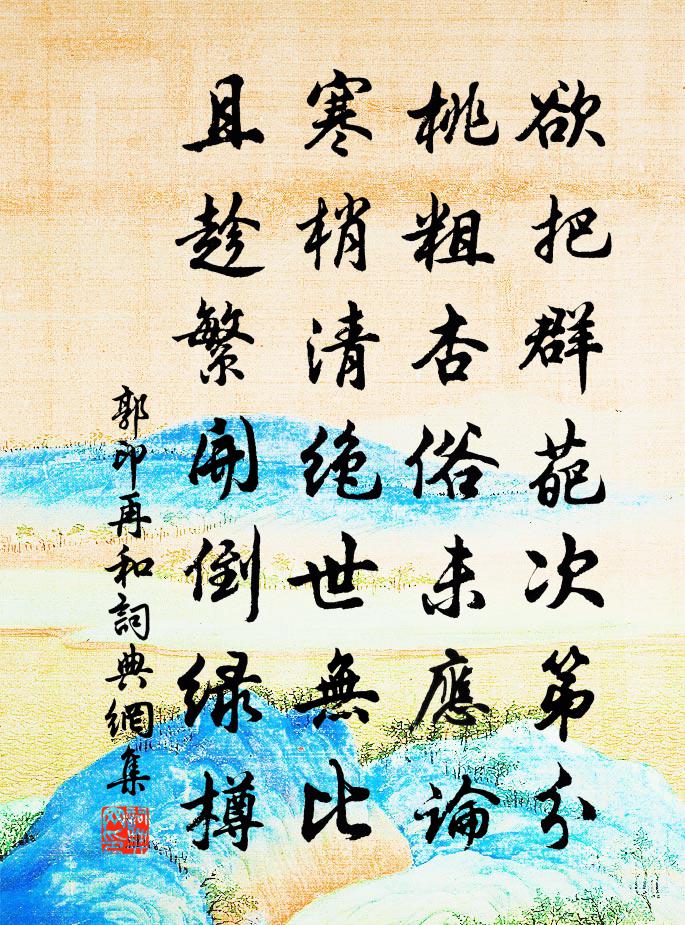 欲把群葩次第分
桃粗杏俗未應論
寒梢清絕世無比
且趁繁開倒綠樽
郭印再和詞典網集